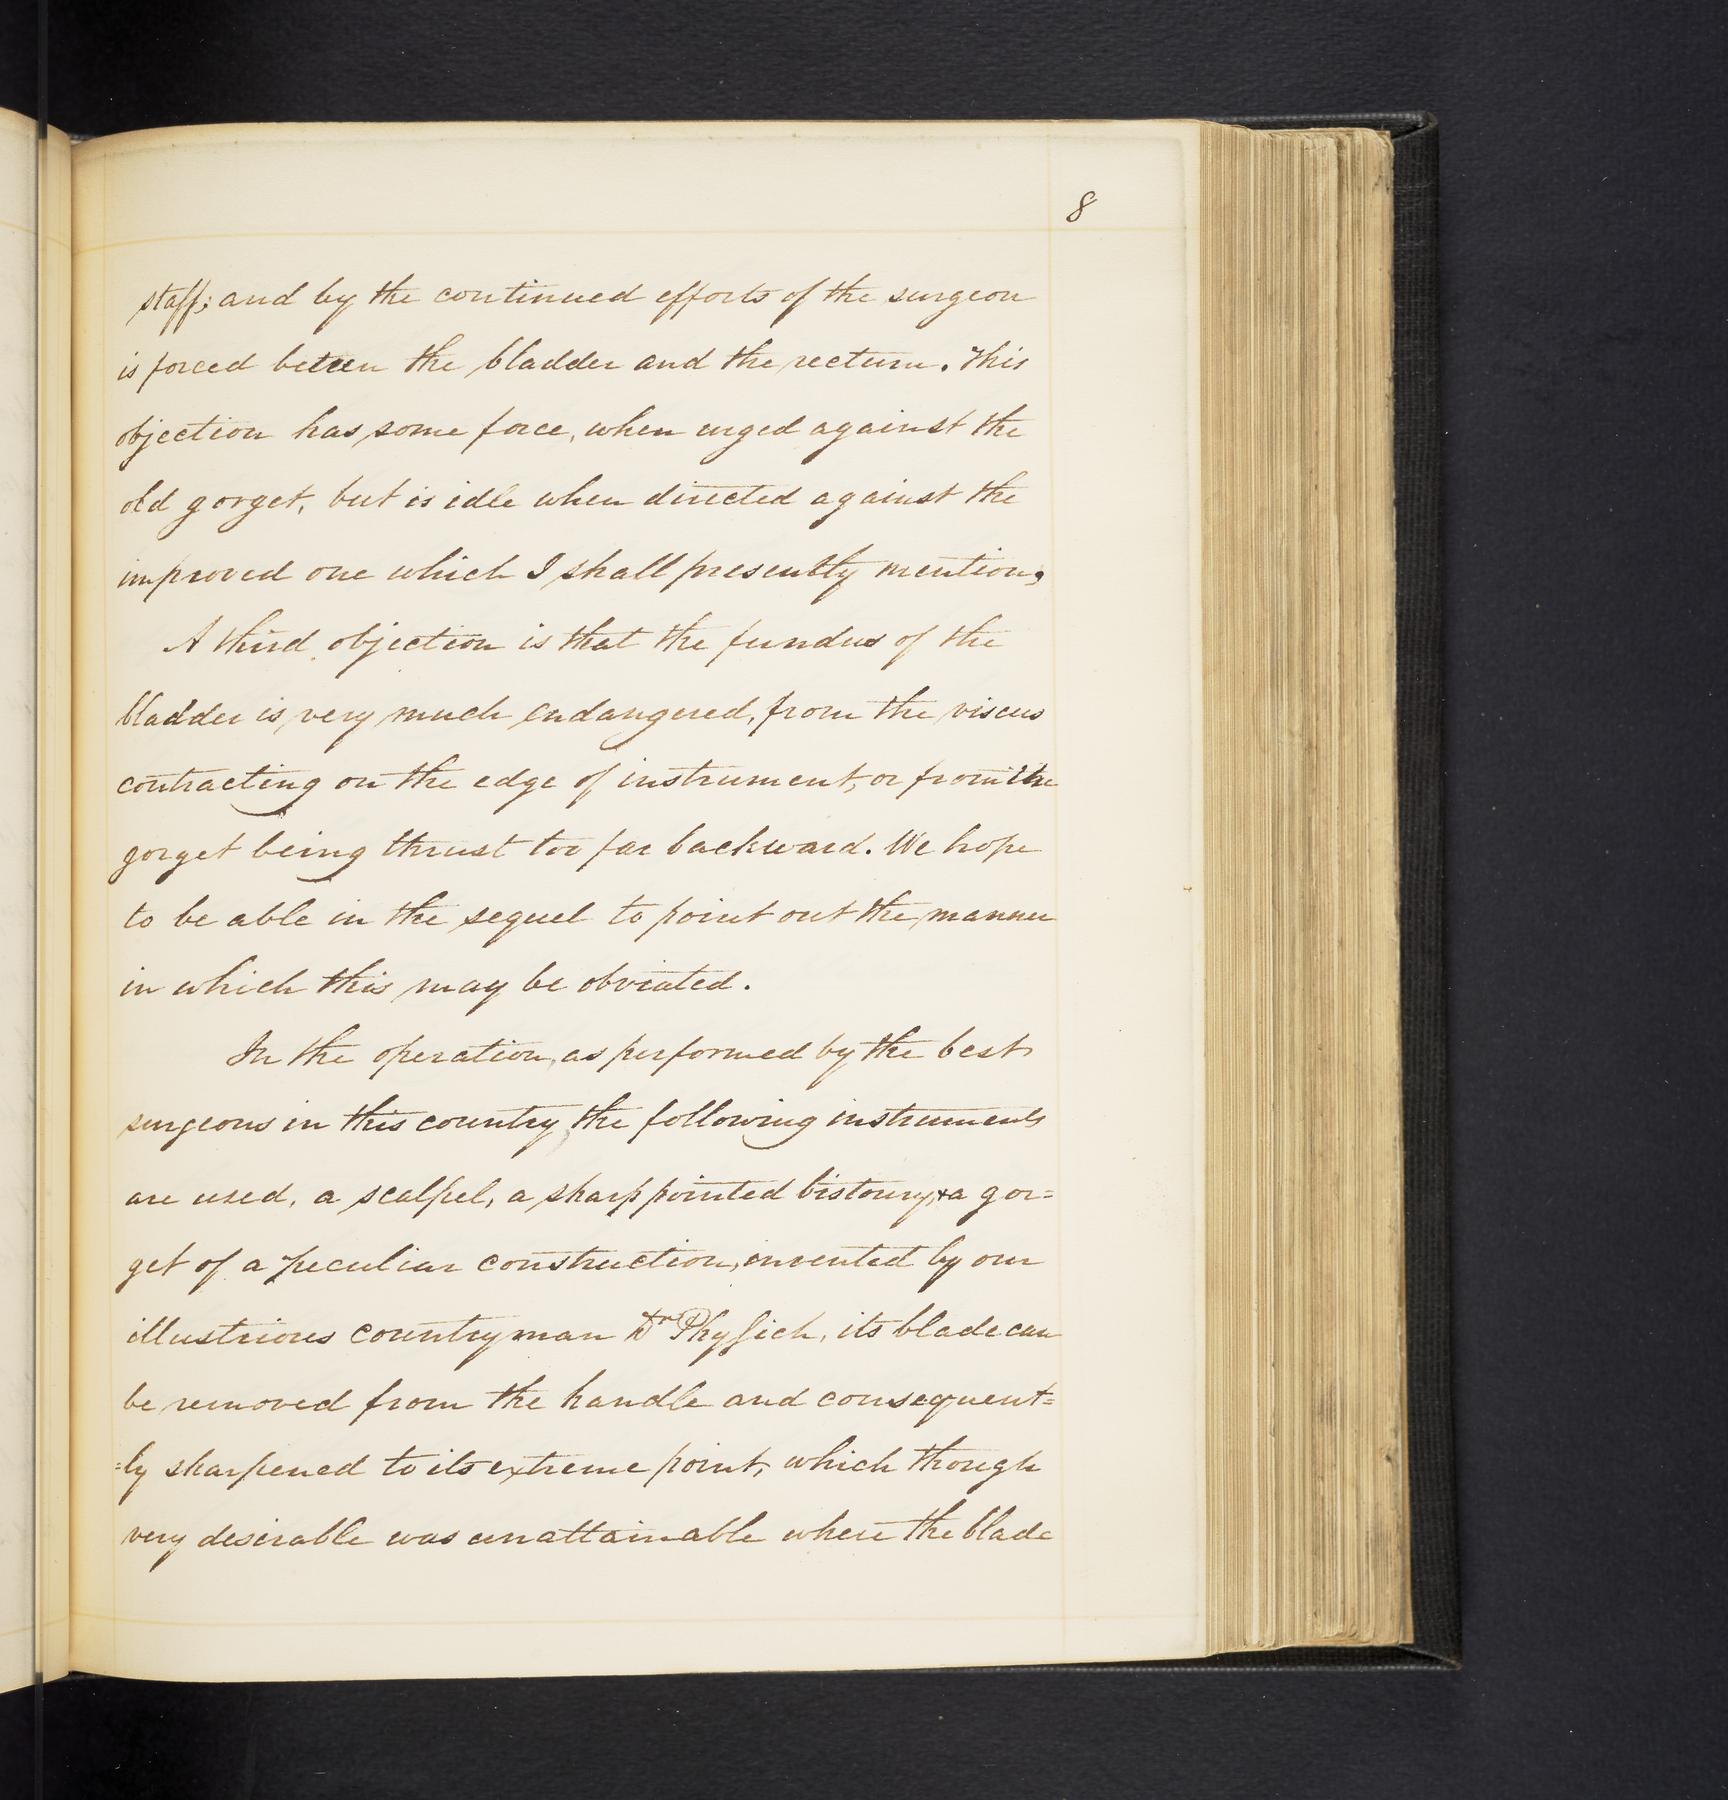 8
staff; and by the continued efforts of the surgeon
is forced between the bladder and the rectum. This
objection has some force, when urged against the
old gorget, but is idle when directed against the
improved one which I shall presently mention,
A third objection is that the fundus of the
bladder is very much endangered, from the viscus
contracting on the edge of instrument, or from the
gorget being thrust too far backward. We hope
to be able in the sequel to point out the manner
in which this may be obviated.
In the operation, as performed by the best
surgeons in this country, the following instruments
are used, a scalpel, a sharp pointed bistoury, & a gor=
get of a peculiar construction, invented by our
illustrious countryman Dr Physick, its blade can
be removed from the handle and consequent=
=ly sharpened to its extreme point, which though
very desirable was unattainable where the blade